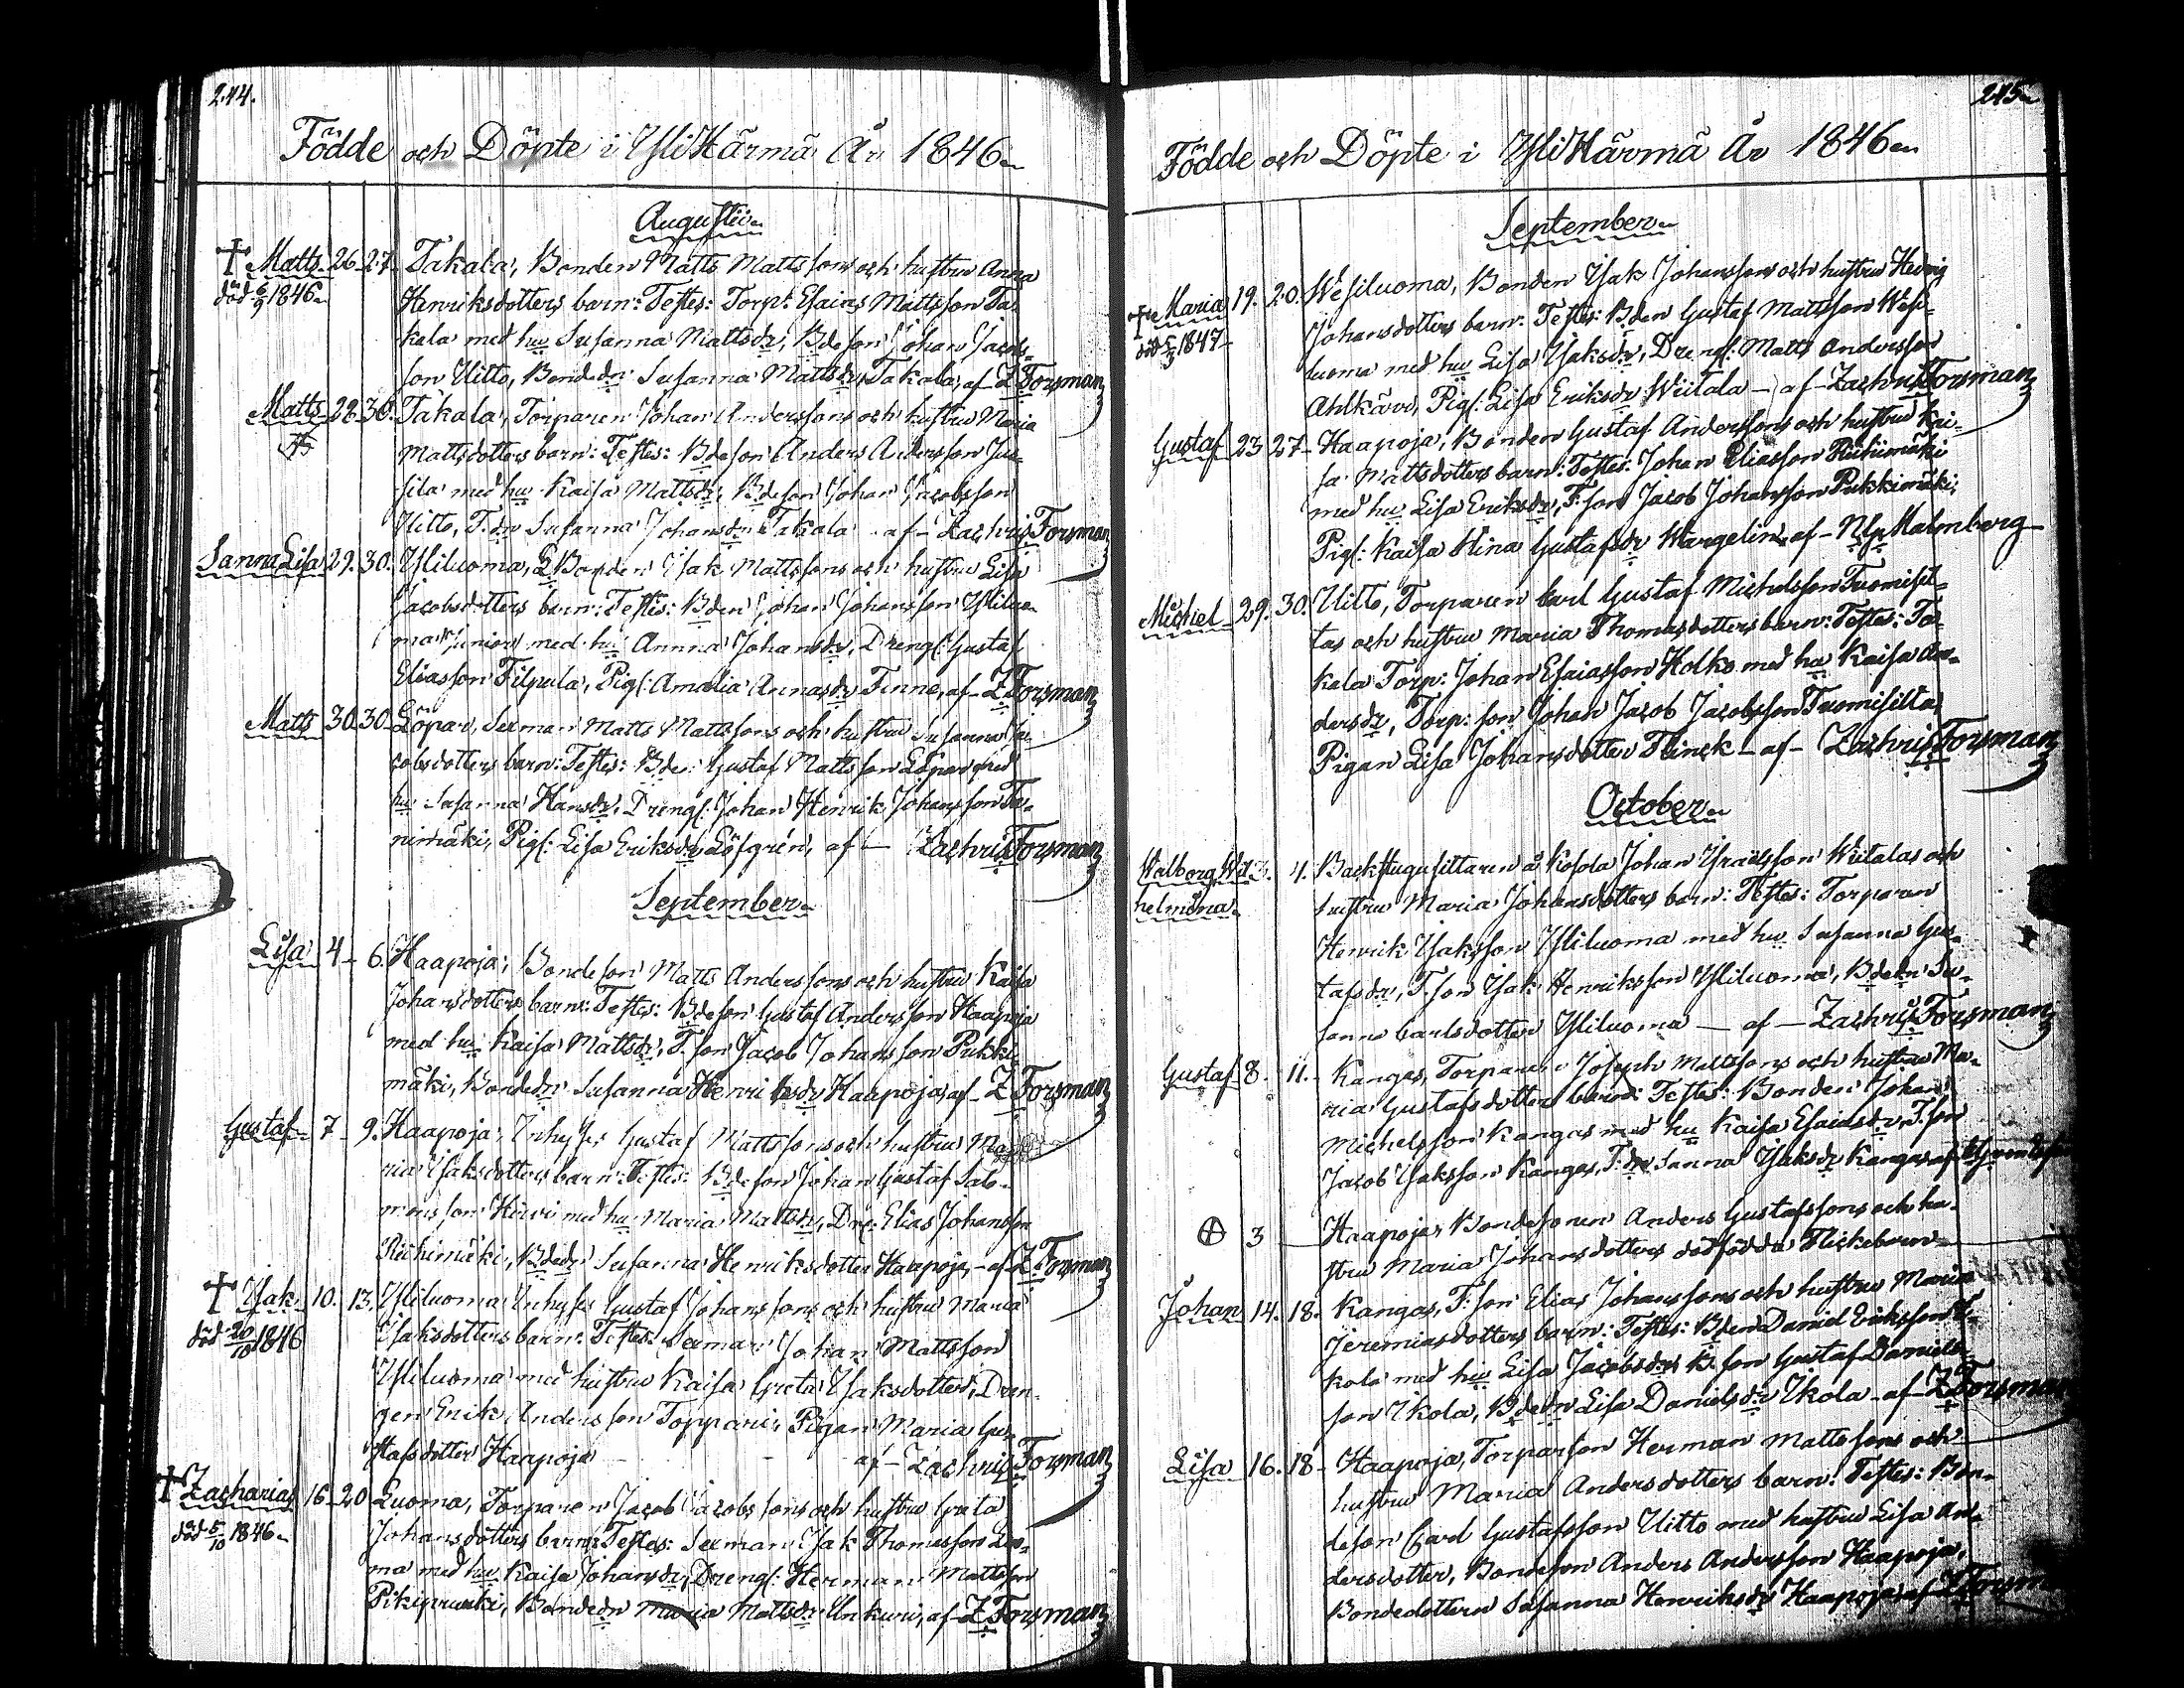 244.
Födde och Döpte i YliHärmä År 1846
Augusti
Matts 26 27 Takala, Bonden Matts Mattssons och hustru Anna
död 6/9 1846 Henriksdotters barn: Testes: Torp: Esaias Mattsson Ta-
kala med hu Susanna Mattsdr, Bdeson Johan Jacobs-
son Uitto, Bondedr Susanna Mattsdr Takala, af Z Forsman
Matts 28 30. Takala, Torparen Johan Anderssons och hustru Maria
Mattsdotters barn: Testes: Bdeson Anders Andersson Jus-
sila med hu Kaisa Mattsdr, Bdeson Johan Jacobsson
Uitto, T. dr Susanna Johansdr Takala - af - Zachris Forsman
Sanna Lisa 29. 30. Yliluoma, Bonden Isak Mattssons och hustru Lisa
Jacobsdotters barn: Testes: Bden Johan Johansson Yliluo-
ma junior med hu Annna Johansdr, Drengs: Gustaf
Eliasson Filpula, Pigs: Amalia Annasdr Finne, af - Z Forsman
Matts 30. 30. Löpar, Sexman Matts Mattssons och hustru Susanna Ja-
cobsdotters barn: Testes: Bde: Gustaf Mattsson Löpar med
hu Susanna Hansdr, Drengs: Johan Henrik Johansson Ta-
nimäki, Pigs: Lisa Eriksdr Löfgrén, af — Zachris Forsman
September
Lisa 4 - 6. Haapoja, Bondeson Matts Anderssons och hustru Kaisa
Johansdotters barn: Testes: Bdeson Gustaf Andersson Haapoja
med hu Kaisa Mattsdr, T. son Jacob Johansson Pukki-
mäki, Bondedr Susanna Henriksdr Haapoja, af - Z Forsman
Gustaf 7 - 9. Haapoja, Inhyses Gustaf Mattssons och hustru Ma-
ria Isaksdotters barn: Testes: Bdeson Johan Gustaf Salo-
mons son Hirvi med hu Maria Mattsdr, Drg: Elias Johansson
Riihimäki, Bdedr Susanna Henriksdotter Haapoja, - af Z. Forsman
Isak 10. 13. Yliluoma Inhyses Gustaf Johanssons och hustru Maria
död 20/10 1846 Isaksdotters barn: Testes: Sexman Johan Mattsson
Yliluoma med hustru Kaisa Greta Isaksdotter, Dren-
gen Erik Andersson Toppari, Pigan Maria Gu-
stafsdotter Haapoja - - af - Zachris Forsman
Zacharias 16 - 20 Luoma, Torparen Jacob Jacobssons och hustru Greta
död 5/10 1846 Johansdotters barn: Testes: Sexman Isak Thomasson Luo-
ma med hu Kaisa Johansdr, Drengs: Herman Mattsson
Pikipruuki, Bondedr Maria Mattsdr Unkuri, af - Z Forsman
245
Födde och Döpte i YliHärmä År 1846
September
Maria 19. 20. Wesiluoma, Bonden Isak Johanssons och hustru Hedvig
död 1847 Johansdotters barn: Testes: Bden Gustaf Mattsson Wesi-
luoma med hu Lisa Isaksdr, Drengs: Matts Andersson
Ahlkärr, Pigs: Lisa Eriksdr Wiitala - af - Zachris Forsman
Gustaf 23 27 - Haapoja, Bonden Gustaf Anderssons och hustru Kai-
sa Mattsdotters barn: Testes: Johan Eliasson Riihimäki
med hu Lisa Eriksdr, T: son Jacob Johansson Pukkimäki,
Pigs: Kaisa Stina Gustafsdr Wargelin, af - Malmberg
Michel 29. 30. Uitto, Torparen Carl Gustaf Michelsson Tuomisil-
tas och hustru Maria Thomasdotters barn: Testes: Ta-
kala Torp: Johan Esaiasson Holko med hu Kaisa An-
dersdr, Torp: son Johan Jacob Jacobsson Tuomisilta,
Pigan Lisa Johansdotter Flinck - af - Zachris Forsman
October
Walborg Wil 3. 4. Backstugusittaren å Kosola Johan Israelsson Wiitalas och
helmina hustru Maria Johansdotters barn: Testes: Torparen
Henrik Isaksson Yliluoma med hu Susanna Gus-
tafsdr, T. son Isak Henriksson Yliluoma, Bdedr Su-
sanna Carlsdotter Yliluoma — af — Zachris Forsman
Gustaf 8. 11. Kangas, Torparen Joseph Mattssons och hustru Ma-
ria Gustafsdotters barn: Testes: Bonden Johan
Michelsson Kangas med hu Kaisa Esaiasdr, T. son
Jacob Isaksson Kangas, T: dr Sanna Isaksdr Kangas af
3 — Haapoja, Bondesonen Anders Gustafssons och hu-
stru Maria Johansdotters dödfödda Flickebarn
Johan 14. 18. Kangas, T: son Elias Johanssons och hustru Maria
Jeremiasdotters barn: Testes: Bden Daniel Eriksson I-
kola med hu Lisa Jacobsdr, B. son Gustaf Daniels-
son Ikola, Bdedr Lisa Danielsdr Ikola - af - Z Forsman
Lisa 16. 18 - Haapoja, Torparson Herman Mattssons och
hustru Maria Andersdotters barn: Testes: Bon-
deson Carl Gustafsson Uitto med hustru Lisa An-
dersdotter, Bondeson Anders Andersson Haapoja,
Bondedottern Susanna Henriksdr Haapoja, af Z Forsm